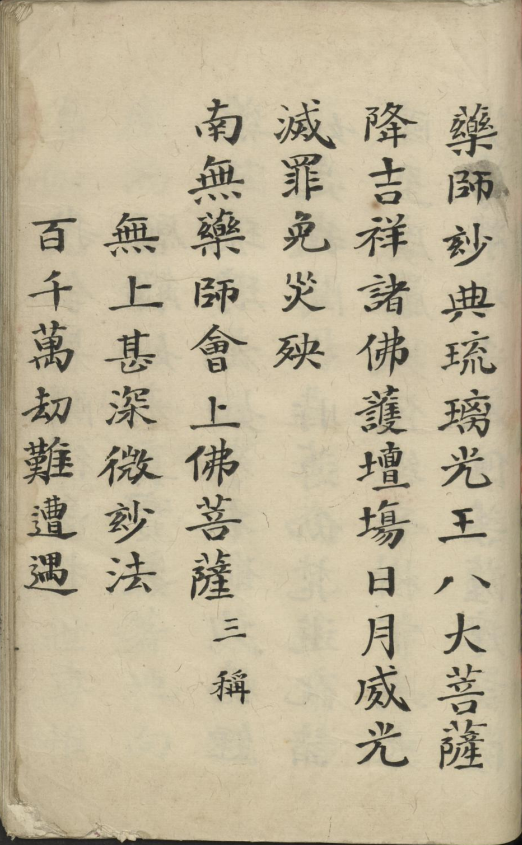 藥師玅典琉璃光王八大菩薩
降吉祥諸佛護壇場日月威光
滅罪免災殃
南無藥師會上佛菩薩三稱
無上甚深微玅法
百千萬劫難遭遇